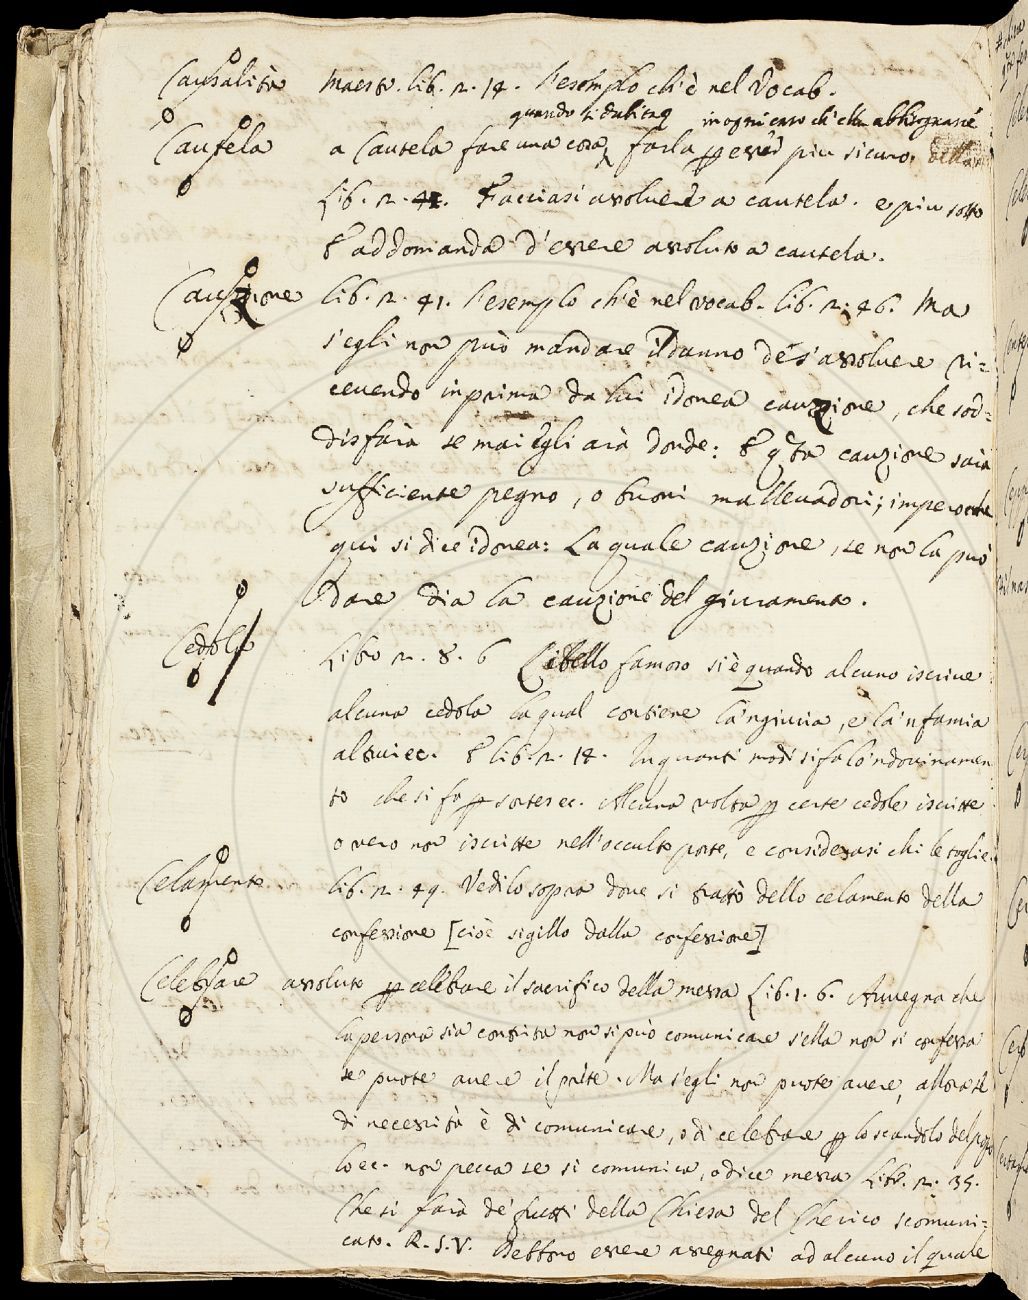 Causalità Maestr. lib. 2. 14. l'esemplo ch'è nel Vocab.
quando si dubita in ogni caso ch'ella abbisognasse
Cautela a Cautela fare una cosa, farla p esser piu sicuro.
Lib. 2. 41. Facciasi assolvere a cautela. e piu sotto
E addomanda d'essere assoluto a cautela.
Cauzione lib. 2. 41. l'esemplo ch'è nel vocab. lib. 2. 46. Ma
s'egli non può mandare il danno de' s'assolvere ri=
cevendo in prima da lui idonea cauzione, che sod=
disfarà se mai egli arà donde: E qsta cauzione sarà
sufficiente pegno, o buoni mallevadori; imperocchè
qui si dice idonea: La quale cauzione, se non la può
dare dia la cauzione del giuramento.
Cedola Libro 2. 8. 6 Libello famoso si è quando alcuno iscrive
alcuna cedola la qual contiene la'ngiuria, e la'nfamia
altrui ec. E lib. 2. 14. In quanti modi si fa lo'ndovinamen
to che si fa p sortes ec. Alcuna volta p certe cedole iscritte
o vero non iscritte nell'occulto poste, e considerasi chi le toglie.
Celamento lib. 2. 49. Vedilo sopra dove si trattò dello celamento della
confessione [cioè sigillo dalla confessione]
Celebrare assoluto p celebrare il sacrifico della messa Lib. 1. 6. Avvegna che
la persona sia contrita non si può comunicare s'ella non si confessa
se puote avere il prete. Ma s'egli non puote avere, allora se
di necessità è di comunicare, o di celebrare p lo scandolo del popo
lo ec. non pecca se si comunica, o dice messa Lib. 2. 35.
Che si farà de' frutti della Chiesa del Cherico scomuni=
cato. R. S. V. Debbono essere assegnati ad alcuno il quale